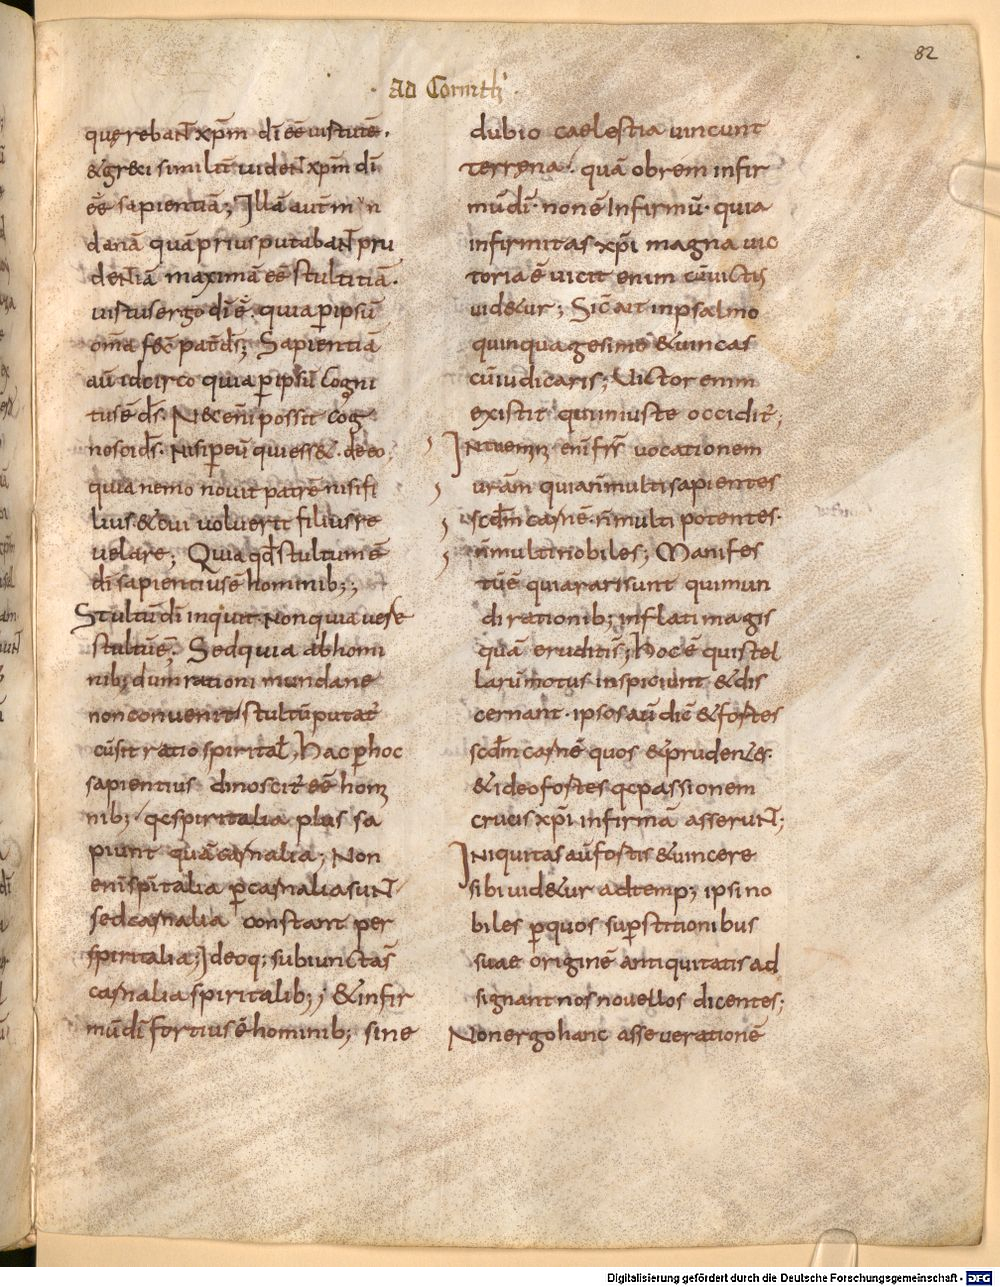 82
Ad Corinth'
quęrebaNT xp̄m dī eē uirtutē.
&gr&i similit̄ uideNT xp̄m dī
eē sapientiā; Illā aut̄ mun
danā quā prius putabaNT pru
deNtiā maximā eē stultitiā.
uirtus ergo dī ē. quia p̱ ipsū
om̄a fec̄ pat̄ d̄s; Sapientiā
au̅ idcirco quia p̱ ipsū cogni
tus ē d̄s. N& eni̅ possit cog
nosci d̄s. Nisi p̱ eū qui ess& de eo;
quia nemo nouit patrē nisi fi
lius. & cui uoluerit filius re
uelare; Quia qd̄ stultum ē
dī sapientius ē hominib;;
Stultū dī inquit. Non quia uere
stultū ē; Sed quia ab homi
nib; dum rationi mundane
non conuenit stultū putat̄
cū sit ratio spirital̄; hac p̱ hoc
sapientius dinoscit̄ eē homi
nib; qꝫ spiritalia plus sa
piunt quā carnalia; Non
eni̅ sp̄italia p̱ carnalia suNT
sed carnalia constant per
spiritalia; Ideoq; subiunctas
carnalia spiritalib;; & infir
mū dī fortius ē hominib; sine
dubio caelestia uincunt
terrena. quā obrem infir
mū dī. non ē Infirmū. quia
infirmitas xp̄i magna uic
toria ē uicit enim cū uictus
uid&ur; Sic̄ ait in psalmo
quinquagesimo & uincas
cū iudicaris; Uictor enim
existit qui iniuste occidit̄;
INtuemini eni̅ fr̄s uocationem
urām quia n̄ multi sapientes
scd̄m carnē. n̄ multi potentes.
n̄ multi nobiles; Manifes
tū ē quia rari sunt qui mun
di rationib; inflati magis
quā eruditi s̄; hoc ē qui stel
larū motus inspiciunt & dis
cernant. ipsos au̅ dic̄ & fortes
scd̄m carnē quos & prudentes.
& ideo fortes qꝫ passionem
crucis xp̄i infirmā asseruNT;
INiquitas au̅ fortis & uincere
sibi uid&ur ad temp; ipsi no
biles p̱ quos sup̱stitionibus
suae originē antiquitatis ad
signant nos nouellos dicentes;
Non ergo hanc asseuerationē
Digitalisierung gefördert durch die Deutsche Forschungsgemeinschaft - DFG